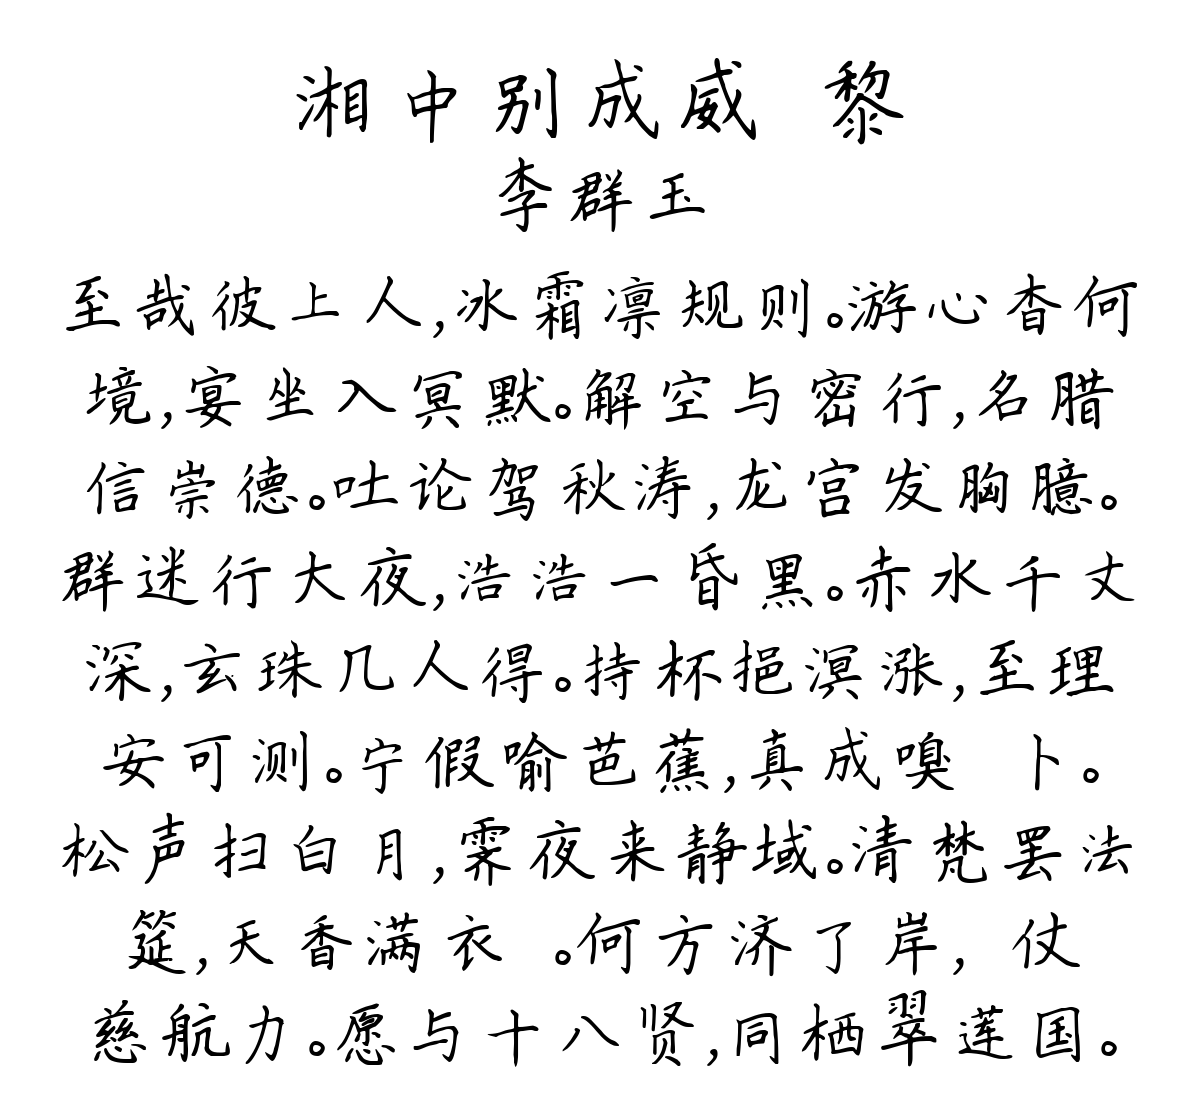 湘中别成威 黎
李群玉
至哉彼上人,冰霜凛规则。游心杳何
境,宴坐入冥默。解空与密行,名腊
信崇德。吐论驾秋涛,龙宫发胸臆。
群迷行大夜,浩浩一昏黑。赤水千丈
深,玄珠几人得。持杯挹溟涨,至理
安可测。宁假喻芭蕉,真成嗅 卜。
松声扫白月,霁夜来静域。清梵罢法
筵,天香满衣 。何方济了岸, 仗
慈航力。愿与十八贤,同栖翠莲国。